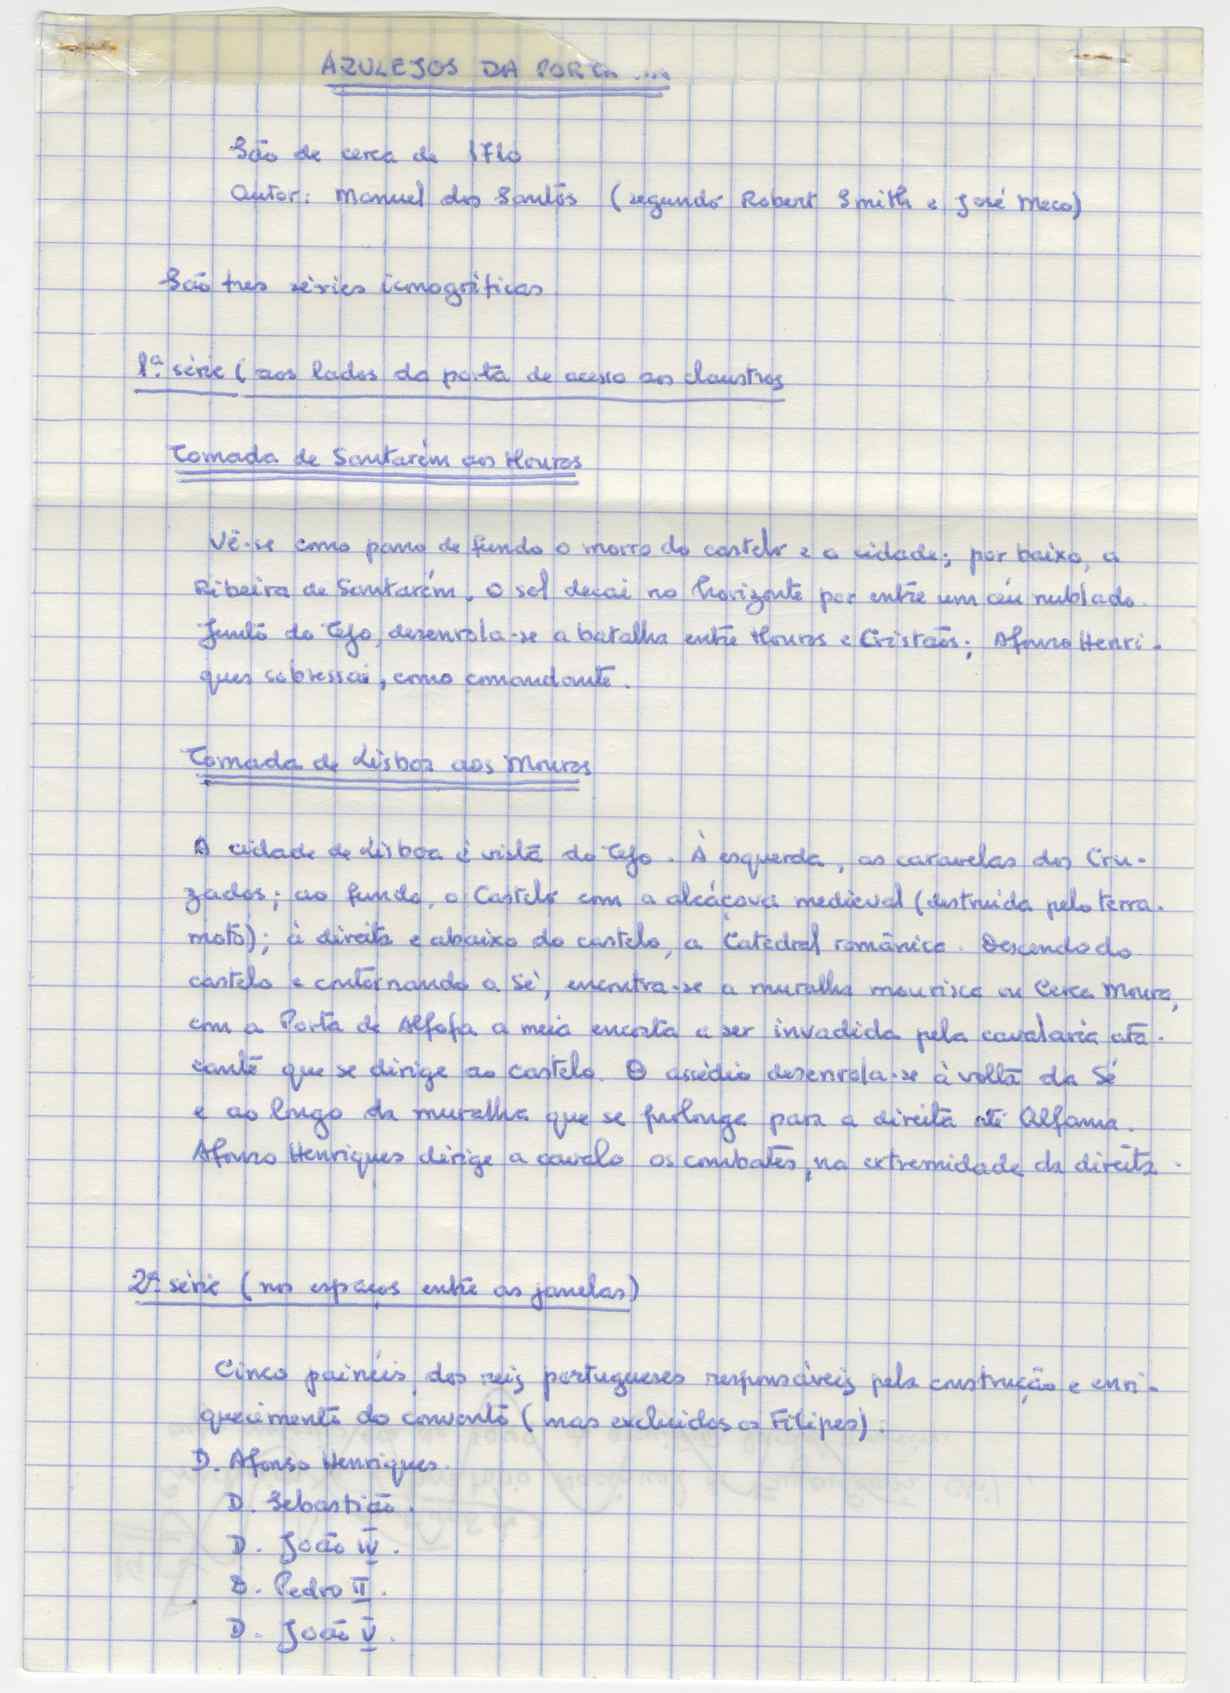 AZULEJOS DA PORTA ....
São de cerca de 1710
Autor: Manuel dos Santos (segundo Robert Smith e José Meco)
São tres séries iconográficas
1ª série (aos lados da porta de acesso aos claustros
Tomada de Santarém aos Mouros
Vê-se como pano de fundo o morro do castelo e a cidade; por baixo, a
Ribeira de Santarém. O sol decai no horizonte por entre um céu nublado.
Junto do Tejo, desenrola-se a batalha entre Mouros e Cristãos; Afonso Henri-
ques sobressai, como comandante.
Tomada de Lisboa aos Mouros
A cidade de Lisboa é vista do Tejo. À esquerda, as caravelas dos Cru-
zados; ao fundo, o Castelo com a alcáçova medieval (destruida pelo terra-
moto); à direita e abaixo do castelo, a Catedral românica. Descendo do
castelo e contornando a Sé, encontra-se a muralha mourisca ou Cerca Moura,
com a Porta de Alfofa a meia encosta a ser invadida pela cavalaria ata-
cante que se dirige ao castelo. O assédio desenrola-se à volta da Sé
e ao longo da muralha que se prolonga para a direita até Alfama.
Afonso Henriques dirige a cavalo os combates, na extremidade da direita.
2ª série (nos espaços entre as janelas)
Cinco painéis dos reis portugueses responsáveis pela construção e enri-
quecimento do convento (mas excluidos os Filipes):
D. Afonso Henriques.
D. Sebastião.
D. João IV.
D. Pedro II.
D. João V.